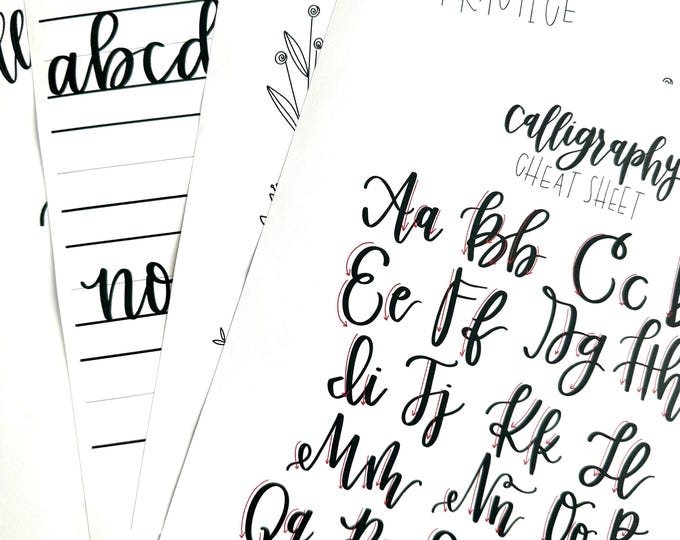 abcd
no
PRACTICE
Calligraphy
CHEAT SHEET
Aa Bb Cc
Ee Ff Gg Hh
Ii Jj Kk Ll
Mm Nn Oo
Qq